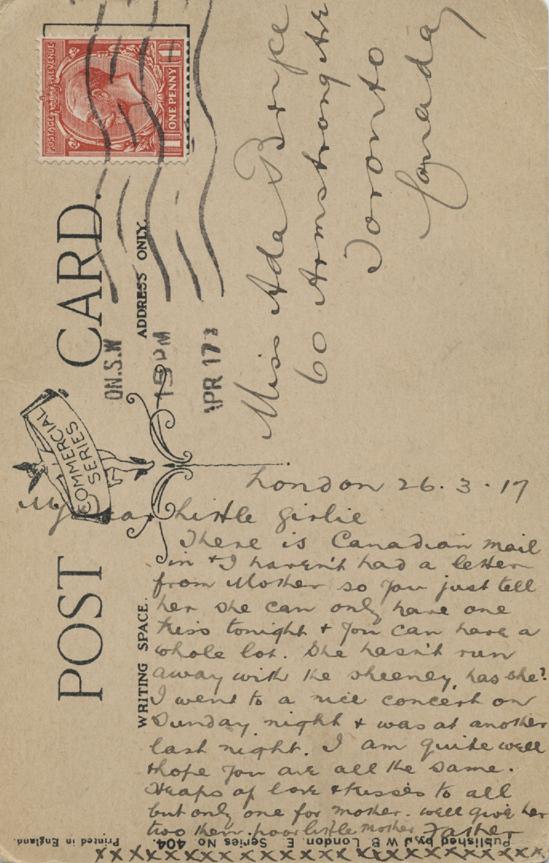 POST CARD.
COMMERCIAL
SERIES
WRITING SPACE.
ADDRESS ONLY.
POSTAGE REVENUE
ONE PENNY
ON.S.W
15 PM
APR 17
Miss Ada Bryce
60 Armstrong Ave
Toronto
Canada
London 26.3.17
My dear Little Girlie
There is Canadian mail
in & I haven't had a letter
from Mother so you just tell
her she can only have one
kiss tonight & you can have a
whole lot. She hasn't run
away with the sheeney, has she?
I went to a nice concert on
Sunday night & was at another
last night. I am quite well
& hope you are all the same.
Heaps of love & kisses to all
but only one for Mother. well give her
two then. poor little mother Father
xxxxxxxxxxxxxxxxxxxxxxxxxxxxxx
Published by J W B London. E. Series No 404.
Printed in England.